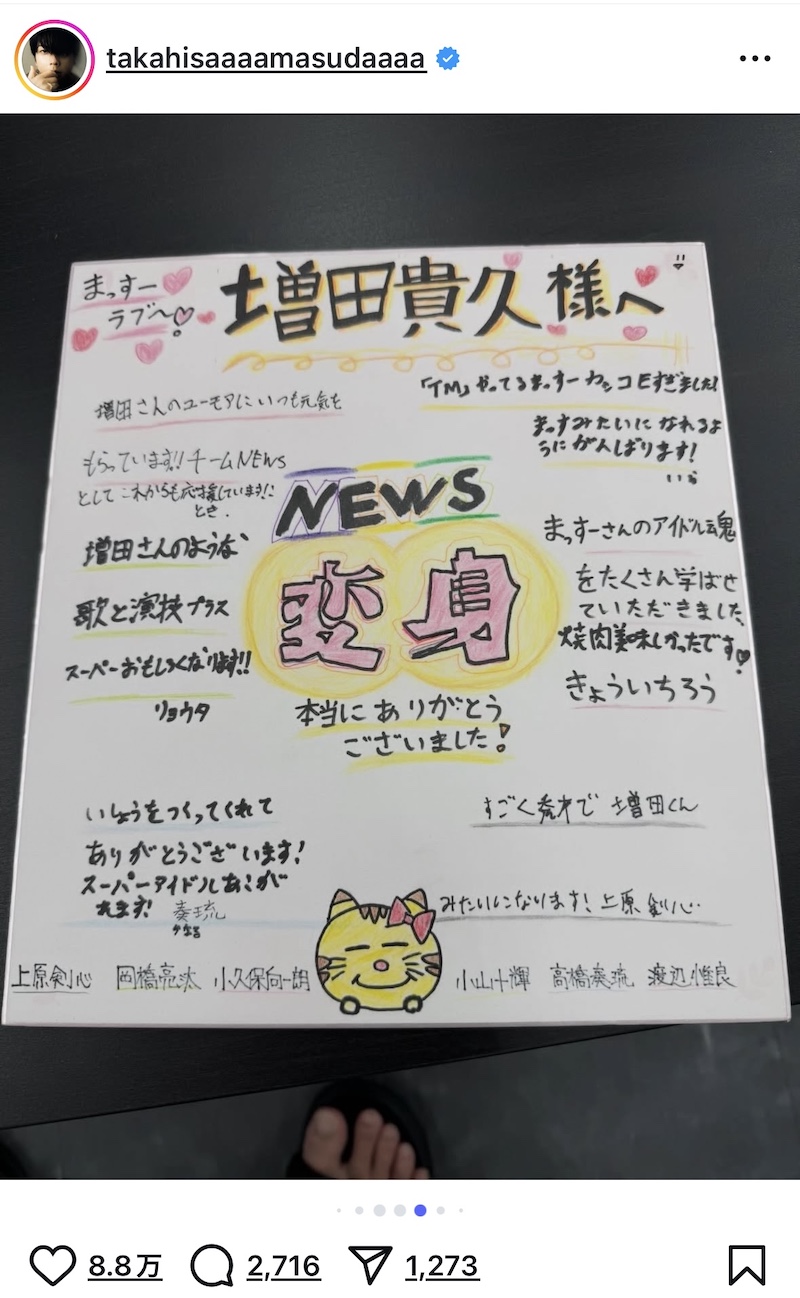 takahisaaaamasudaaaa
まっすー
ラブ〜♡!
増田貴久様へ
増田さんのユーモアにいつも元気を
もらっています!!チームNEWS
としてこれからも応援しています!!
とき.
「TM」やってるまっすーカッコEすぎました!
まっすみたいになれるよ
うにがんばります!
いら
NEWS
変身
本当にありがとう
ございました!
増田さんのような
歌と演技プラス
スーパーおもしろくなります!!
リョウタ
まっすーさんのアイドル魂
をたくさん学ばせ
ていただきました、
焼肉美味しかったです!
きょういちろう
いしょうをつくってくれて
ありがとうございます!
スーパーアイドルあこが
れます! 奏琉
かなる
すごく秀才で 増田くん
みたいになります! 上原剣心
上原剣心 岡橋亮汰 小久保向一朗 小山十輝 高橋奏琉 渡辺惟良
8.8万 2,716 1,273